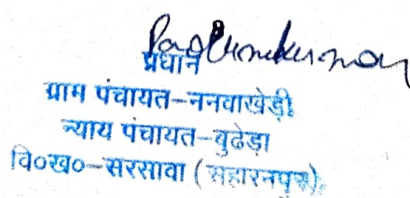 प्रधान
ग्राम पंचायत-ननवाखेड़ी
न्याय पंचायत-बुढेड़ा
वि०ख०-सरसावा (सहारनपुर)